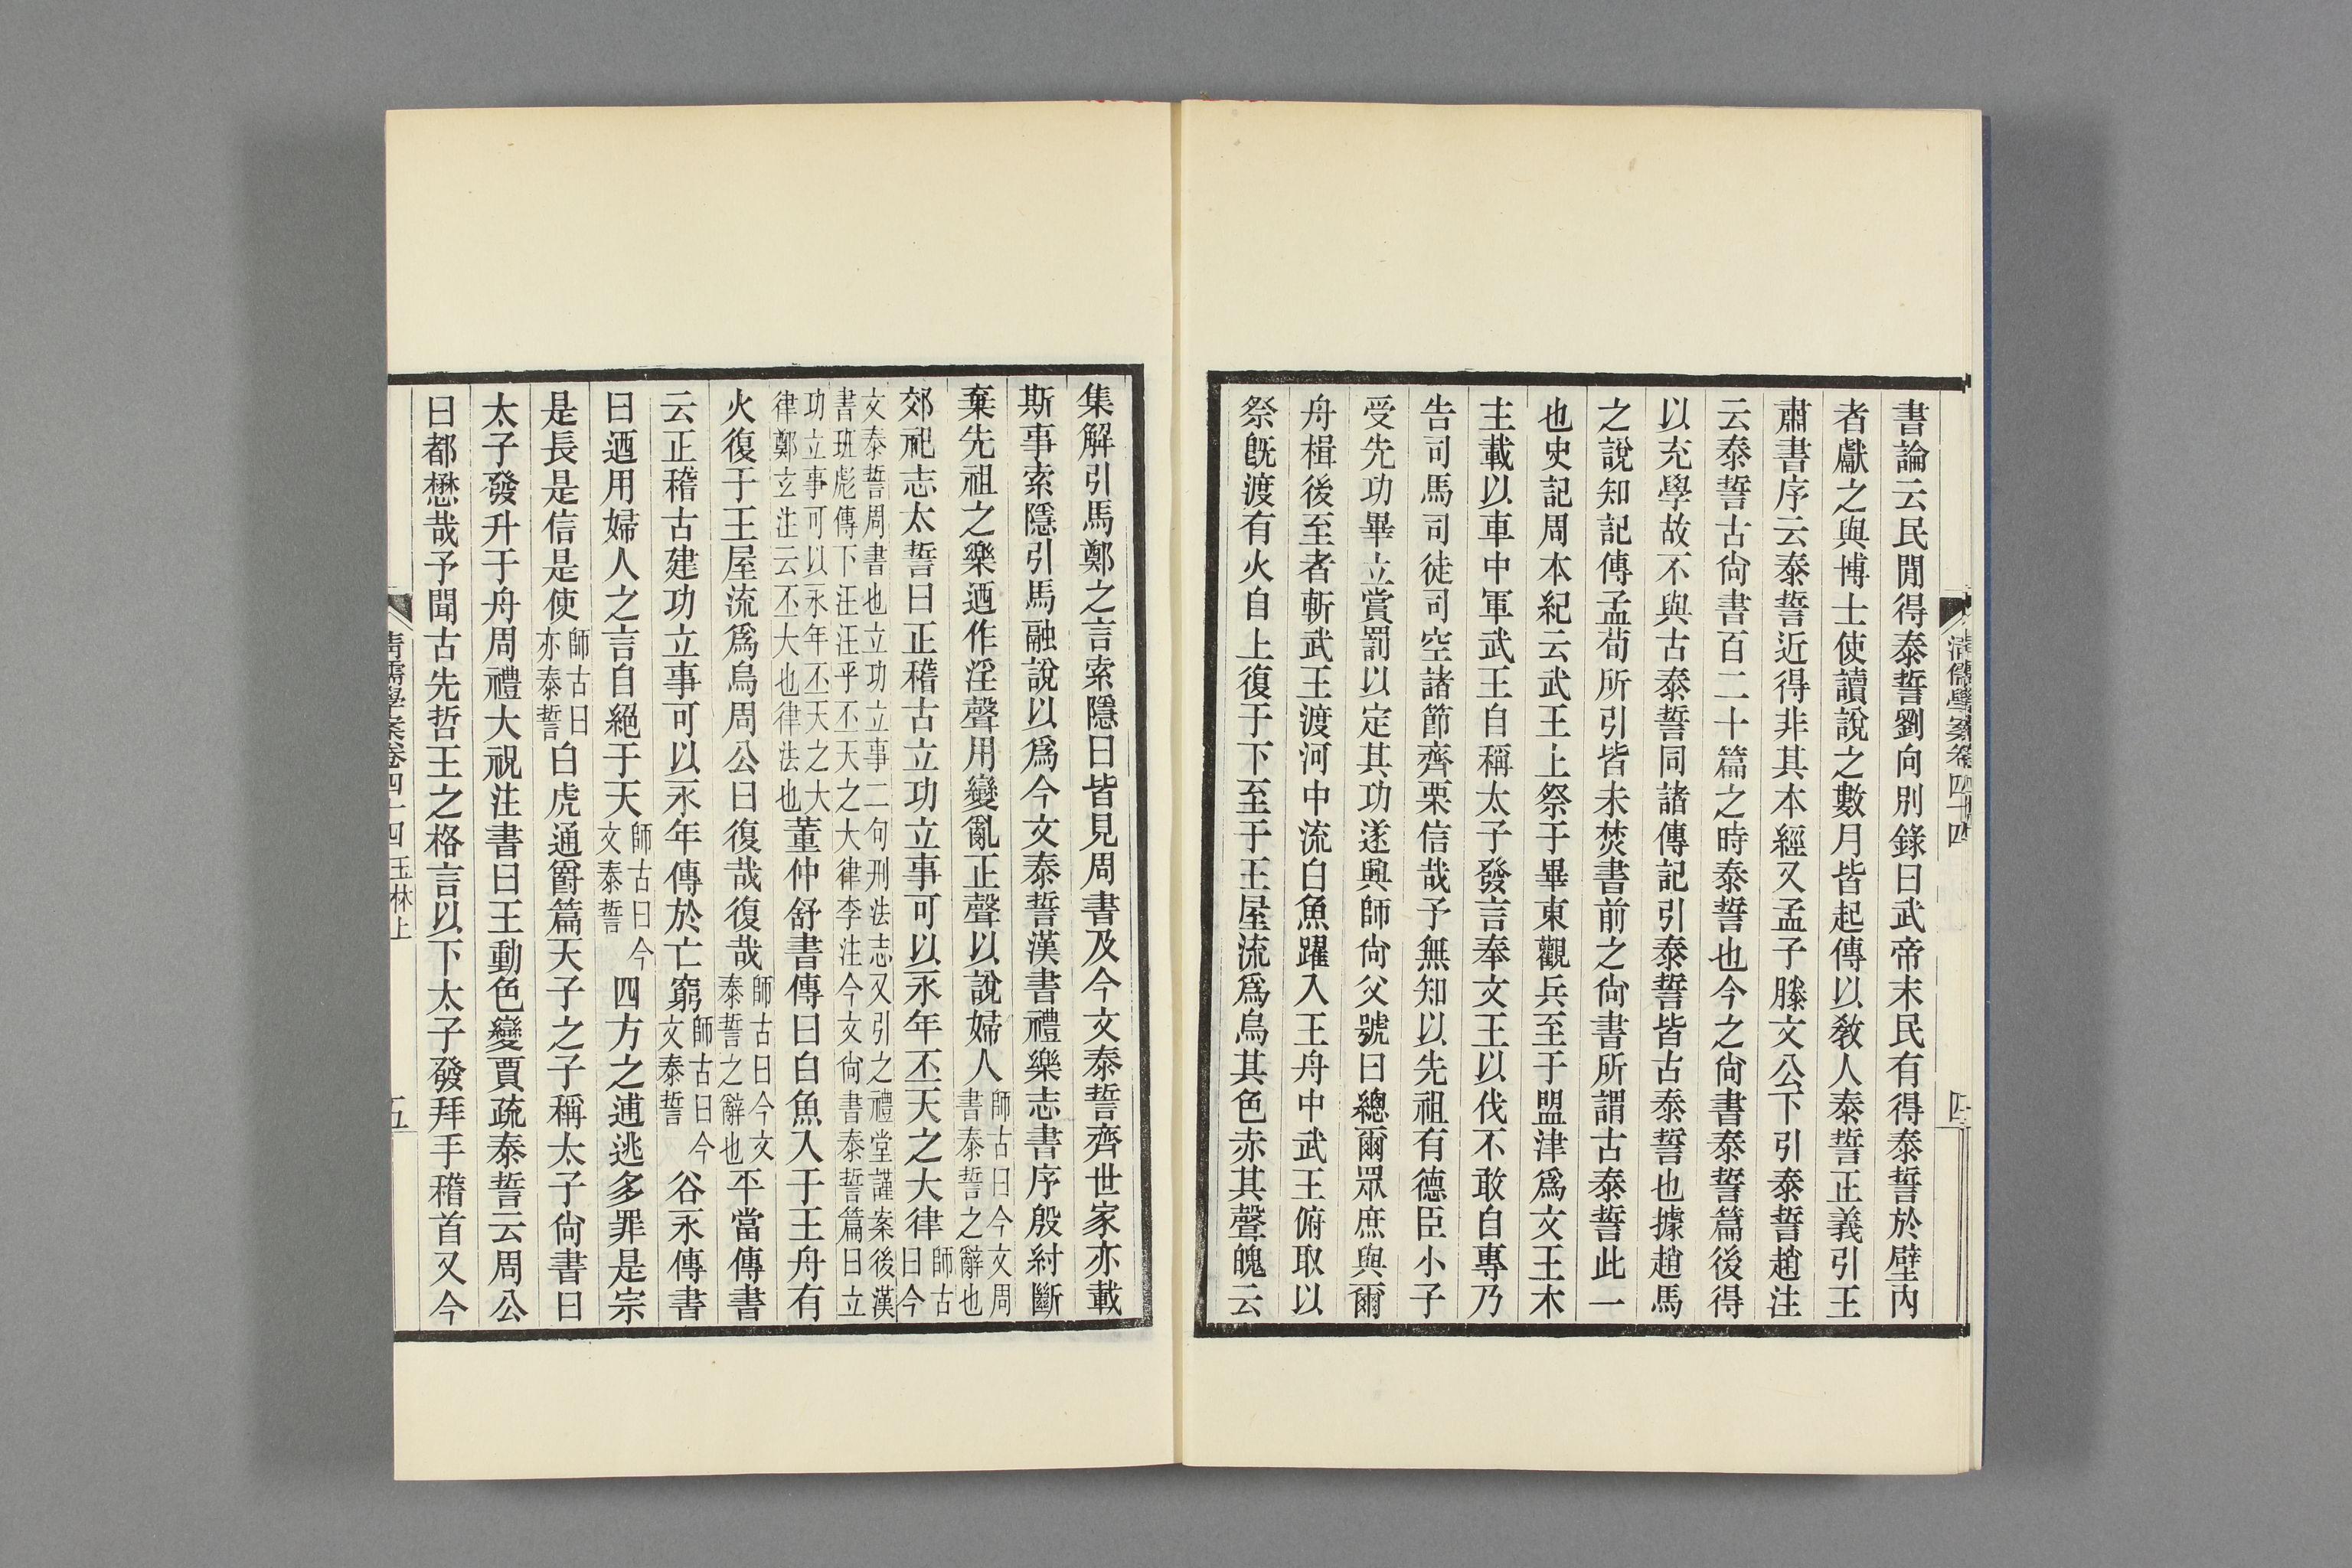 書論云民閒得泰誓劉向別錄曰武帝末民有得泰誓於壁內
者獻之與博士使讀說之數月皆起傳以敎人泰誓正義引王
肅書序云泰誓近得非其本經又孟子滕文公下引泰誓趙注
云泰誓古尙書百二十篇之時泰誓也今之尙書泰誓篇後得
以充學故不與古泰誓同諸傳記引泰誓皆古泰誓也據趙馬
之說知記傳孟荀所引皆未焚書前之尙書所謂古泰誓此一
也史記周本紀云武王上祭于畢東觀兵至于盟津爲文王木
主載以車中軍武王自稱太子發言奉文王以伐不敢自專乃
告司馬司徒司空諸節齊栗信哉予無知以先祖有德臣小子
受先功畢立賞罰以定其功遂興師尙父號曰總爾眾庶與爾
舟楫後至者斬武王渡河中流白魚躍入王舟中武王俯取以
祭旣渡有火自上復于下至于王屋流爲烏其色赤其聲魄云
清儒學案卷四十四
四
集解引馬鄭之言索隱曰皆見周書及今文泰誓齊世家亦載
斯事索隱引馬融說以爲今文泰誓漢書禮樂志書序殷紂斷
棄先祖之樂迺作淫聲用變亂正聲以說婦人師古曰今文周書泰誓之辭也
郊祀志太誓曰正稽古立功立事可以永年丕天之大律師古曰今
文泰誓周書也立功立事二句刑法志又引之禮堂謹案後漢
書班彪傳下汪汪乎丕天之大律李注今文尙書泰誓篇曰立
功立事可以永年丕天之大
律鄭玄注云丕大也律法也董仲舒書傳曰白魚入于王舟有
火復于王屋流爲烏周公曰復哉復哉師古曰今文泰誓之辭也平當傳書
云正稽古建功立事可以永年傳於亡窮師古曰今文泰誓谷永傳書
曰迺用婦人之言自絕于天師古曰今文泰誓四方之逋逃多罪是宗
是長是信是使師古曰亦泰誓白虎通爵篇天子之子稱太子尙書曰
太子發升于舟周禮大祝注書曰王動色變賈疏泰誓云周公
曰都懋哉予聞古先哲王之格言以下太子發拜手稽首又今
清儒學案卷四十四 玉林上
五